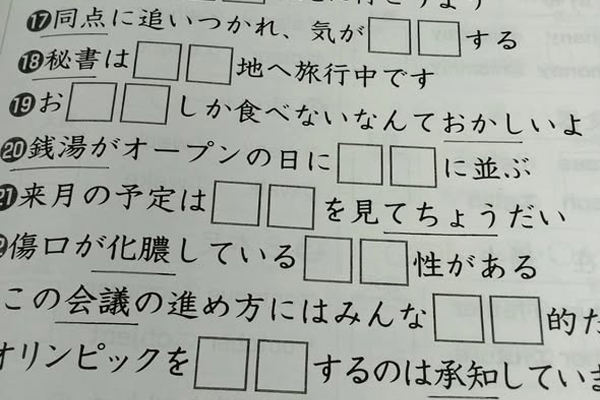 ⑰同点に追いつかれ、気が□□する
⑱秘書は□□地へ旅行中です
⑲お□□しか食べないなんておかしいよ
⑳銭湯がオープンの日に□□に並ぶ
㉑来月の予定は□□を見てちょうだい
傷口が化膿している□□性がある
この会議の進め方にはみんな□□的だ
オリンピックを□□するのは承知していま